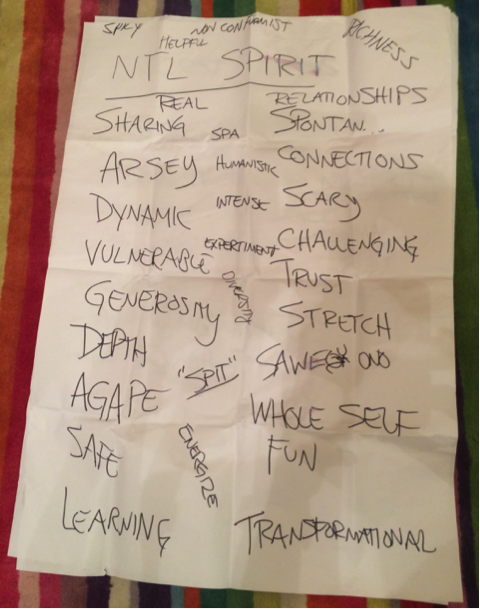 SPIKY NON CONFORMIST RICHNESS
HELPFUL
NTL SPIRIT
REAL RELATIONSHIPS
SHARING SPA SPONTAN...
ARSEY HUMANISTIC CONNECTIONS
DYNAMIC INTENSE SCARY
VULNERABLE EXPERTIMENT CHALLENGING
DIVERSITY TRUST
GENEROSITY STRETCH
DEPTH
AGAPE "SPIT" WHOLE SELF
SAFE ENERGIZE FUN
LEARNING TRANSFORMATIONAL